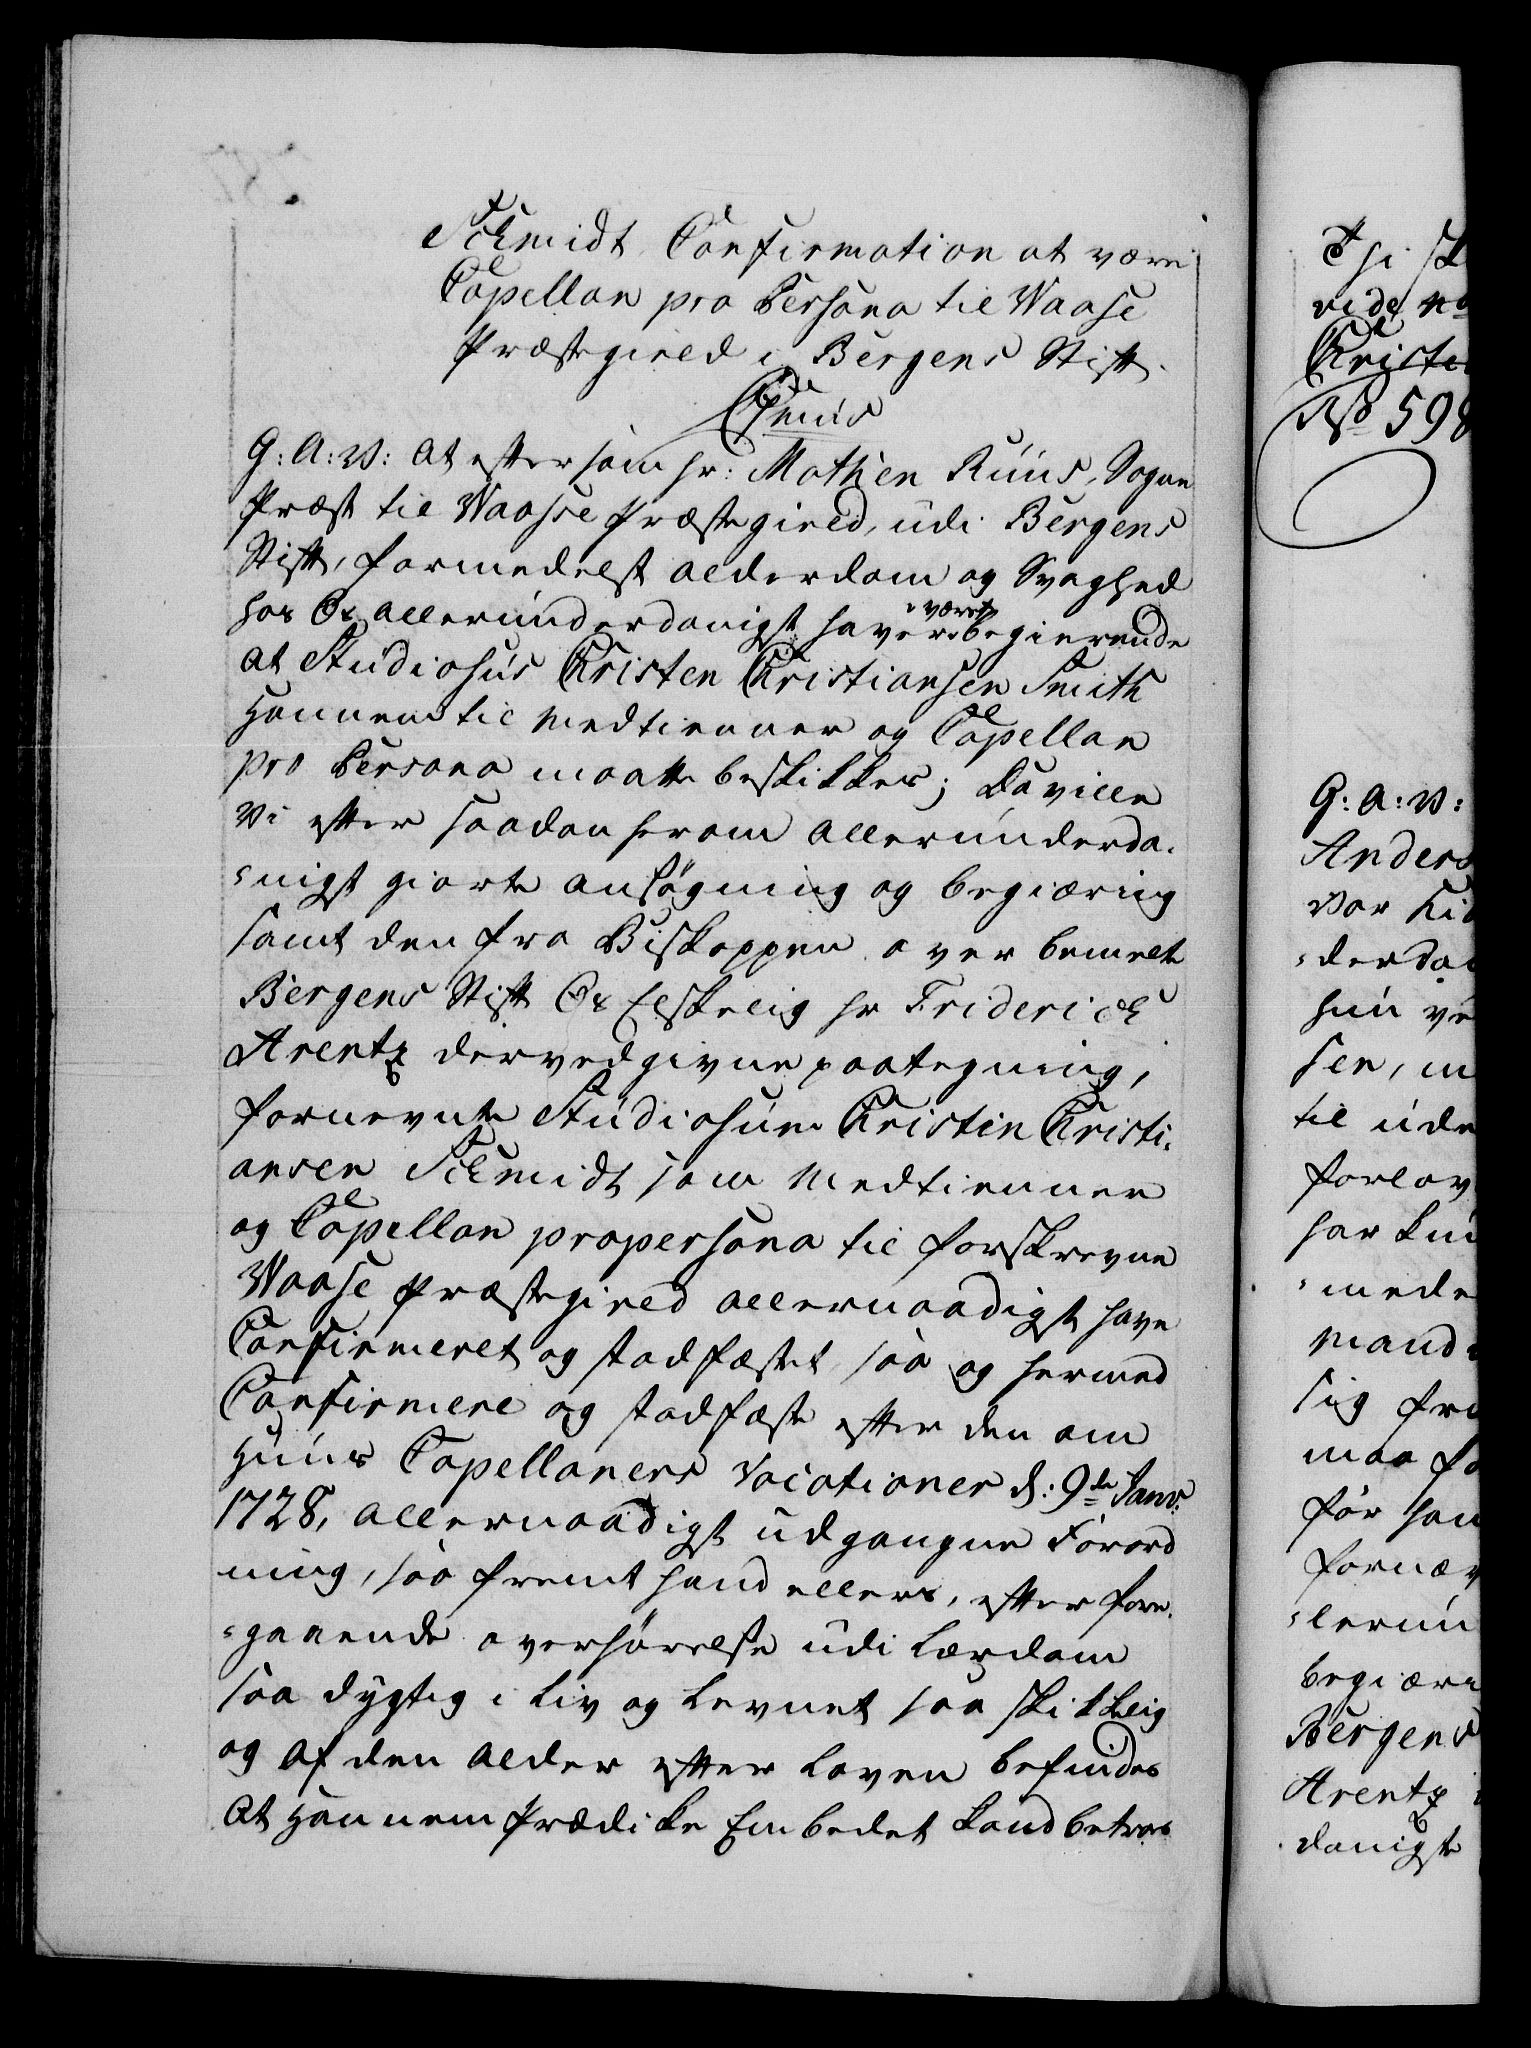 Schmidt Confirmation at være
Capellan pro Persona til Waase
Præstegield i Bergens Stift.
G: A: V: At eftersom hr: Mathien Ruus, Sogne
Præst til Waasse Præstegield, udi Bergens
Stift, formedelst Alderdom og Svaghed
hos Os allerunderdanigst haver været begierende
at Studiosus Christen Christiansen Smith
Hannem til Medtienner og Capellan
pro Persona maatte beskikkes; Da ville
Vi efter saadan herom allerunderda-
nigst giorte ansøgning og begiæring
samt den fra Biskoppen over bemelte
Bergens Stift Os Elskelig hr Friderich
Arentz derved givne paategning,
fornevnte Studiosum Christen Christi-
ansen Schmidt som Medtienner
og Capellan propersona til forskrevne
Waase Præstegield allernaadigst have
Confirmeret og stadfæstet saa og hermed
Confirmere og stadfæste efter den om
Huus Capellaners Vocationer d: 9de Janv:
1728, allernaadigst udgangne Forord
ning, saa fremt hand ellers, efter fore-
gaaende overhørelse udi Lærdom
saa dygtig i Liv og Levnet saa skikkelig
og af den Alder efter Loven befindes
At Hannem Prædike Embedet kand betroes
Thi sk
vide no
Christi
598
G: A: V:
Anders
Vor Ki
derda
hun ve
sen, m
til ude
forlov
har kun
mede
Mand
sig fr
maa fo
før han
fornæv
lerun
begiære
Bergens
Arentz
danigst